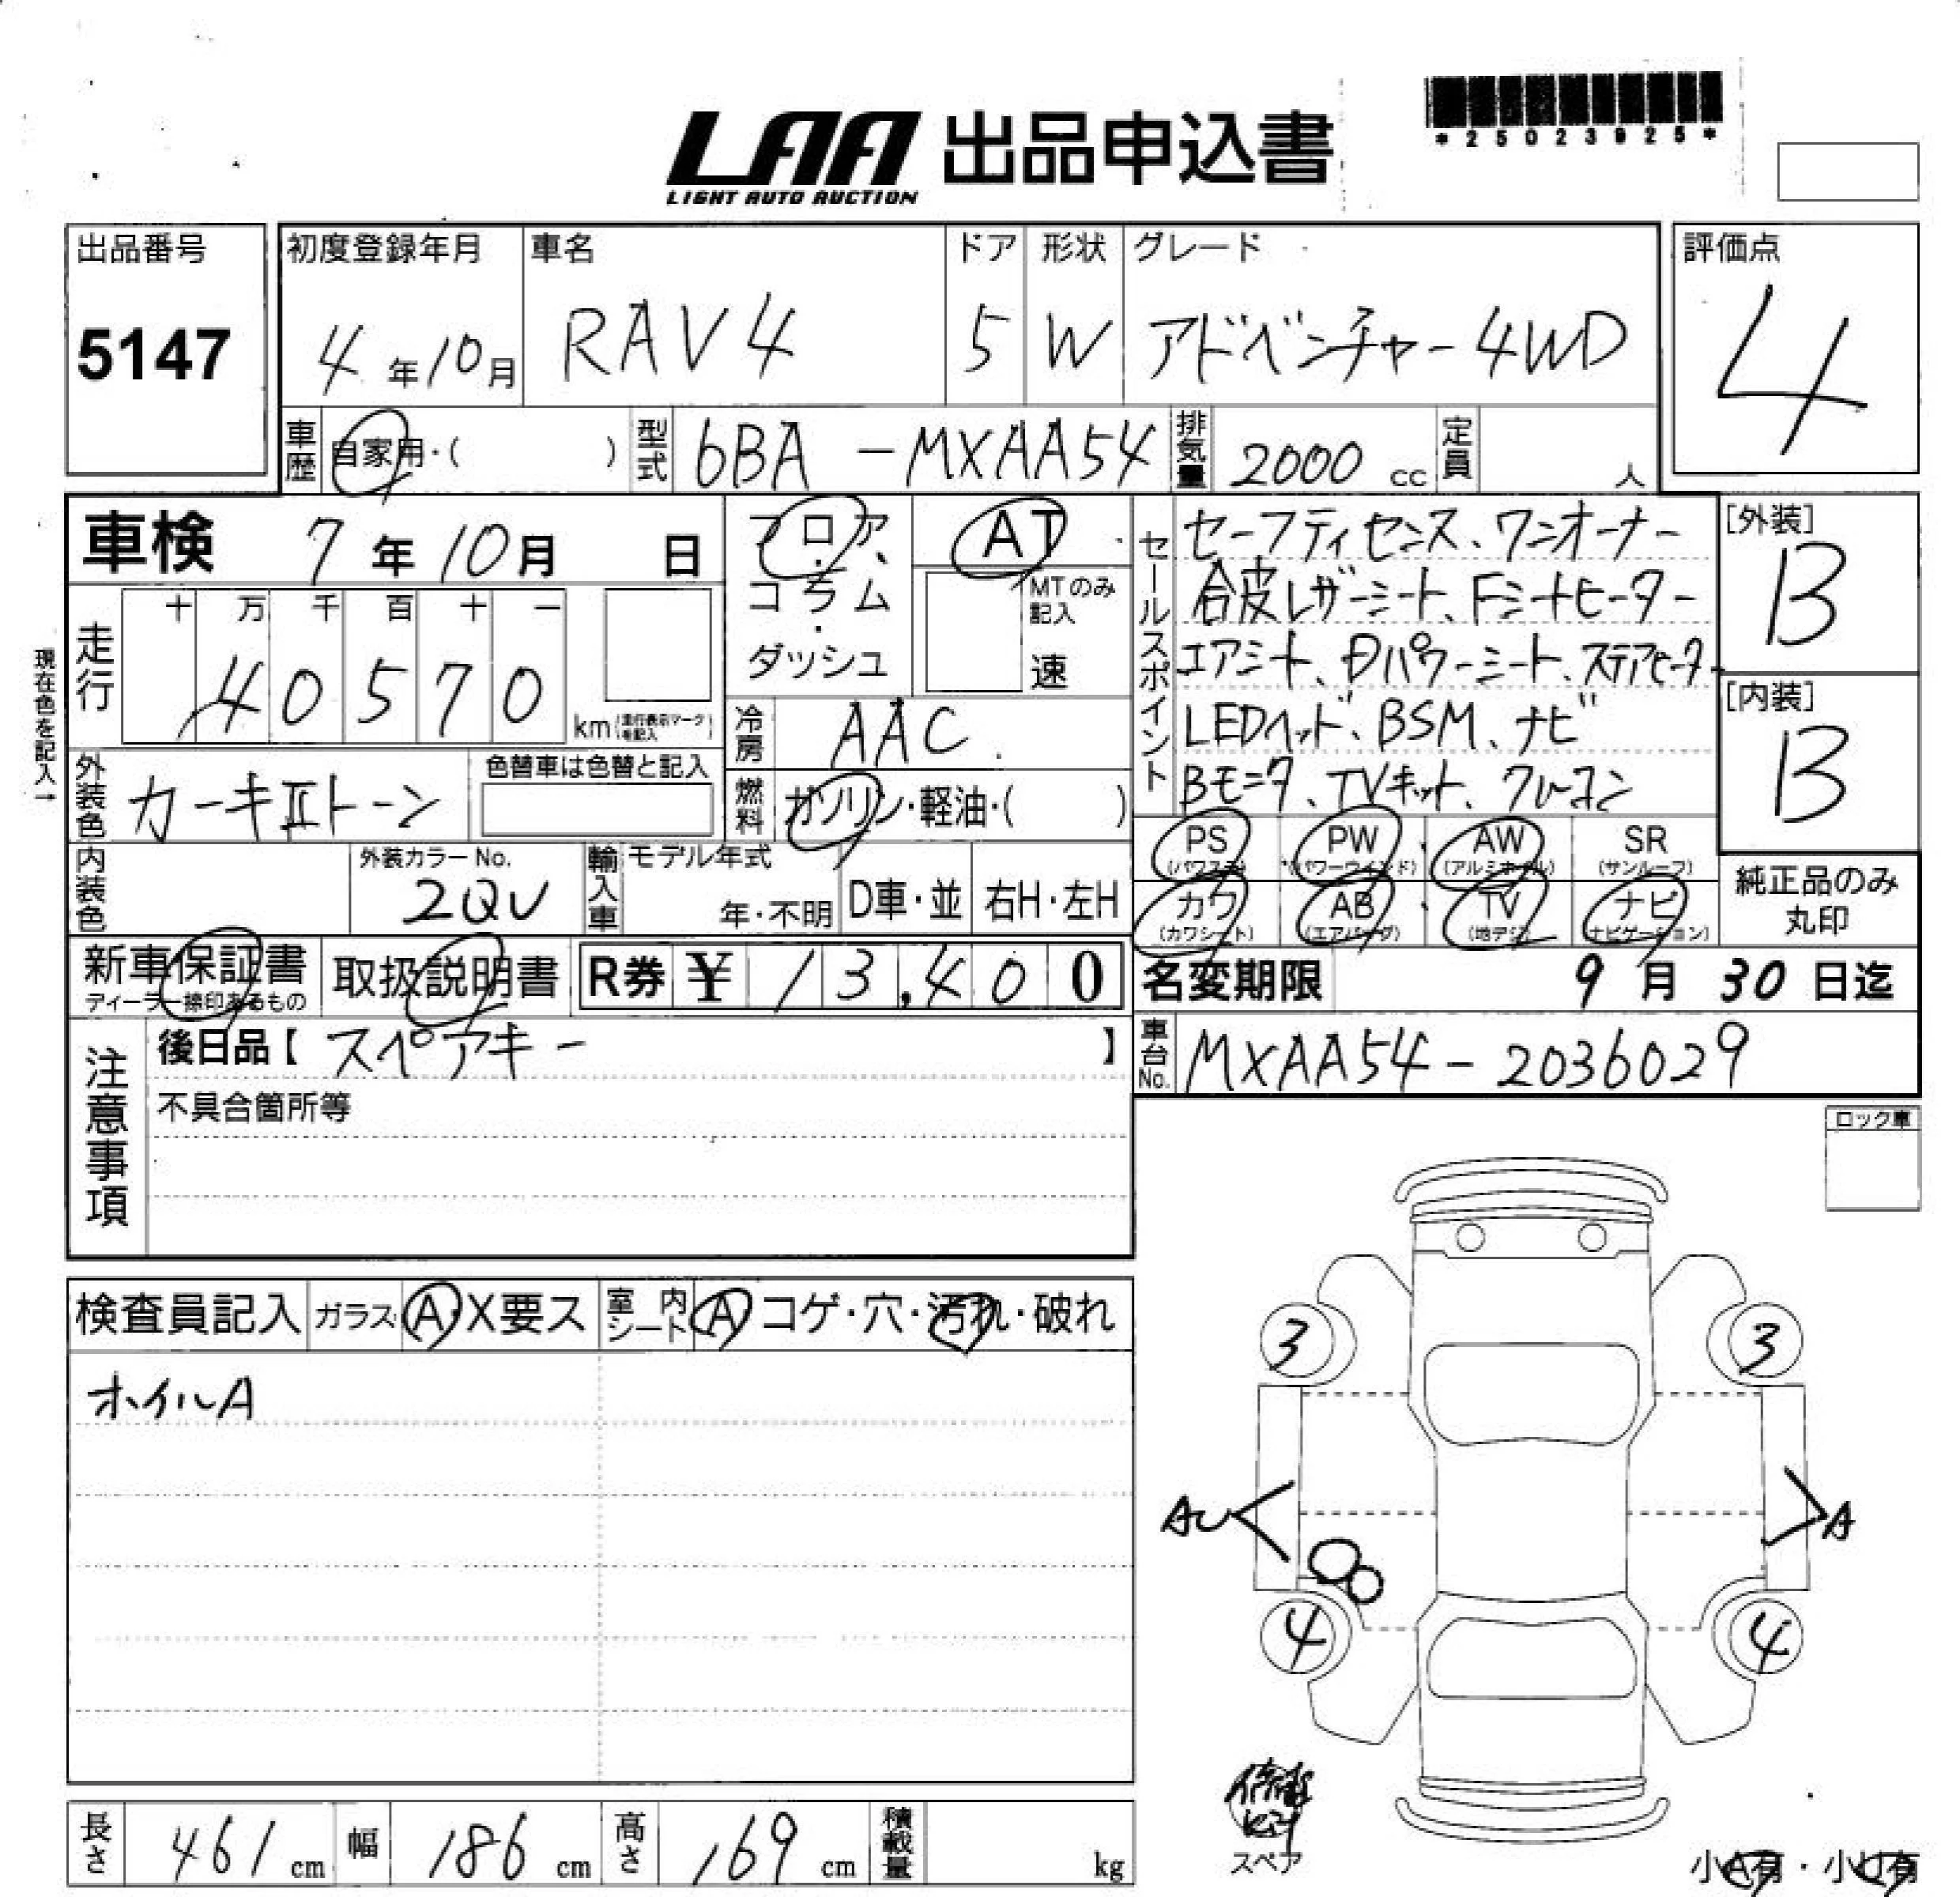 LAA 出品申込書
LIGHT AUTO AUCTION
*25023925*
出品番号
5147
初度登録年月
4年10月
車名
RAV4
ドア
5
形状
W
グレード
アドベンチャー 4WD
評価点
4
車歴
自家用・( )
型式
6BA-MXAA54
排気量
2000 cc
定員
人
車検 7年10月 日
フロア、
コラム
・
ダッシュ
AT
MTのみ
記入
速
セールスポイント
セーフティセンス、ワンオーナー
合皮レザーシート、Fシートヒーター
エアシート、Dパワーシート、ステアヒーター
LEDヘッド、BSM、ナビ
Bモニタ、TVキット、クルーコン
[外装]
B
[内装]
B
現在色を記入→
走行
十 万 千 百 十 一
40570
km (走行表示マークを記入)
冷房
AAC
外装色
カーキⅡトーン
色替車は色替と記入
燃料
ガソリン・軽油・( )
PS
(パワステ)
PW
(パワーウインド)
AW
(アルミホイル)
SR
(サンルーフ)
カワ
(カワシート)
AB
(エアバッグ)
TV
(地デジ)
ナビ
(ナビゲーション)
純正品のみ
丸印
内装色
外装カラーNo.
2QV
輸入車
モデル年式
年・不明
D車・並
右H・左H
新車保証書
ディーラー捺印あるもの
取扱説明書
R券 ¥ 13,400
名変期限 9月30日迄
注意事項
後日品【スペアキー】
不具合箇所等
車台No.
MXAA54-2036029
ロック車
検査員記入
ガラス A・X要ス
室内シート A コゲ・穴・汚れ・破れ
ホイルA
3
3
AU
A
4
4
修理
キット
スペア
小A有・小U有
長さ
461 cm
幅
186 cm
高さ
169 cm
積載量
kg